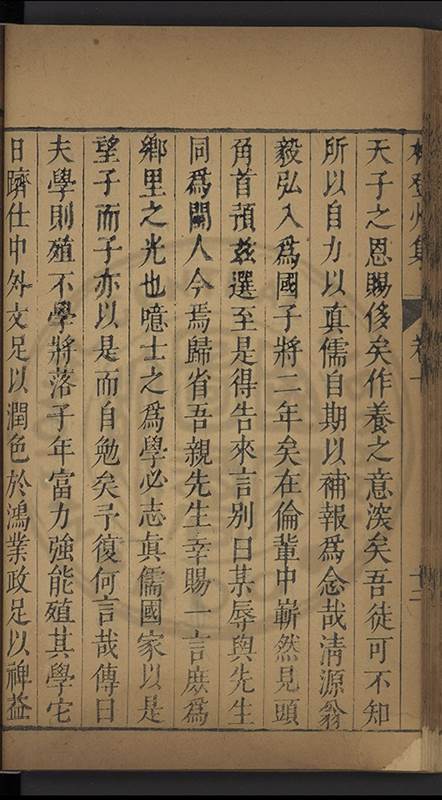 林登州集 卷十 十二
天子之恩賜侈矣作養之意深矣吾徒可不知
所以自力以真儒自期以補報爲念哉清源翁
毅弘入爲國子將二年矣在倫輩中嶄然見頭
角首預茲選至是得告來言别曰某辱與先生
同爲閩人今焉歸省吾親先生幸賜一言庶爲
鄉里之光也噫士之爲學必志真儒國家以是
望子而子亦以是而自勉矣予復何言哉傳曰
夫學則殖不學將落子年富力強能殖其學它
日躋仕中外文足以潤色於鴻業政足以裨益